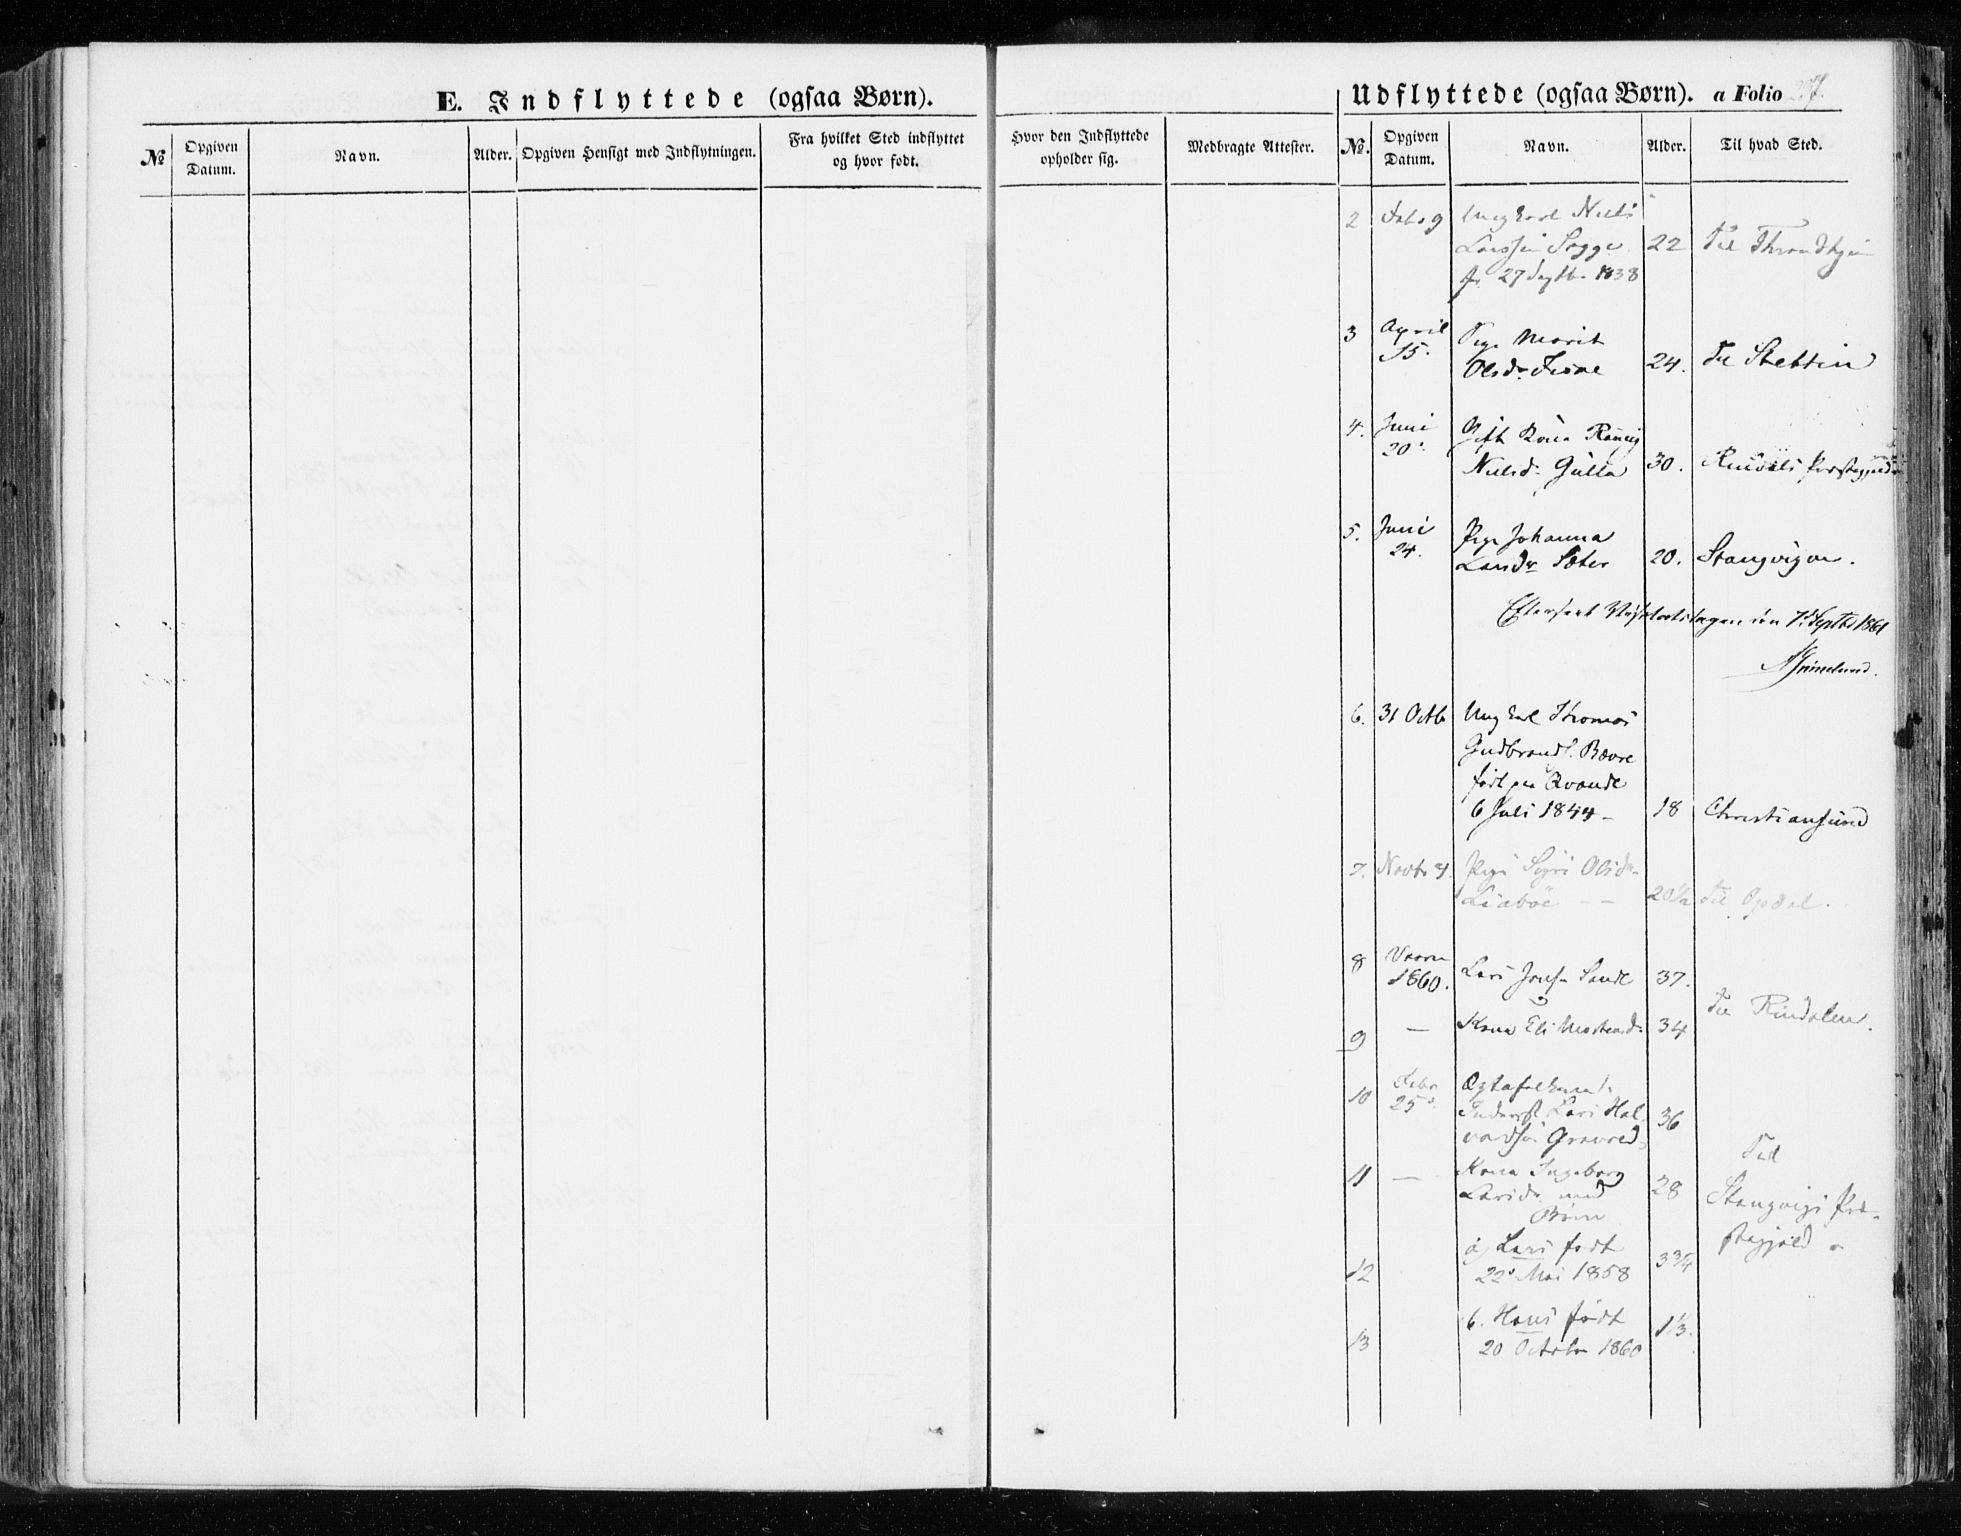 E. Indflyttede (ogsaa Børn).
№
Opgiven
Datum.
Navn.
Alder.
Opgiven Hensigt med Indflytningen.
Fra hvilket Sted indflyttet
og hvor født.
Hvor den Indflyttede
opholder sig.
Medbragte Attester.
Udflyttede (ogsaa Børn). a Folio
№.
Opgiven
Datum.
Navn.
Alder.
Til hvad Sted.
2 Febr 9 Ungkarl Niels
Larssen Sogge 22 Til Throndhjem
27 Septbr 1838
3 April Pige Marit
15. Olsdr 24. Til Stettin
4. Juni Gift Kone
20. Nielsdr Gulla 30. Rindals Præstegjeld
5. Juni Pige Johanna
24. Larsdr Sæter 20. Stangvigen.
Efterseet den 7d Septbr 1861
Grimelund.
6. 31 Octb Ungkarl Thomas
Gudbrands. Bævre
født paa Qvande
6 Juli 1844 18 Christiansund
7. Novbr 4. Pige Sigri Olsdr
Liabøe 20½ Til Opdal.
8 Vaaren
1860. Lars Sande 37.
Til Rindalen.
9 — Kone Eli Mortensdr 34
10 Febr Ægtefolkene
25. Inderst Lars Hal-
vordsen 36
11 — Kone Ingeborg
Larsdr med 28
Børn
Til
Stangvigs Præ-
stegjeld
12 a, Lars født
22d Mai 1858 3¾
13 b. Hans født
20 Octobr 1860 1⅓.